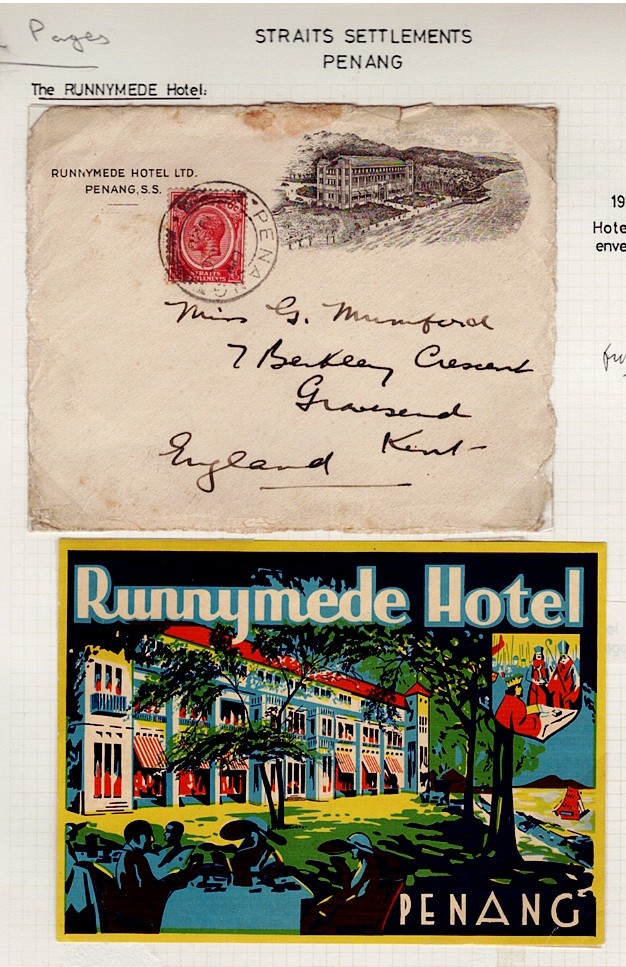 Pages
STRAITS SETTLEMENTS
PENANG
The RUNNYMEDE Hotel:
RUNNYMEDE HOTEL LTD.
PENANG, S.S.
PENANG
STRAITS
SETTLEMENTS
19
Hote
enve
Miss G. Mumford
7 Berkley Crescent
Gravesend
Kent
England
Runnymede Hotel
PENANG